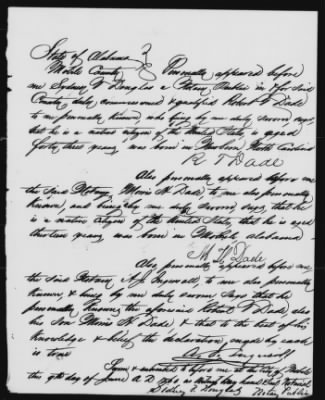 State of Alabama }
Mobile County } Personally appeared before
me Sydney T Douglas a Notary Public in & for said
County duly commissioned & qualified Robert T Dade
to me personally known, who being by me duly sworn says,
that he is a native citizen of the United States, is aged
forty three years, was born in North Carolina
R T Dade
Also personally appeared before me
the said Notary Dade to me also personally
known, and being by me duly sworn says, that he
is a native citizen of the United States, that he is aged
years was born in Mobile Alabama
Dade
Also personally appeared before me
the said Notary A. J. Ingersoll to me also personally
known, & being by me duly sworn says that he
personally knows the aforesaid Robert T Dade also
his Son Dade & that to the best of his
knowledge & belief the declaration made by each
is true
Sworn & subscribed to before me at the City of Mobile
this 9th day of June A.D. Notarial
Sidney T. Douglas Notary Public